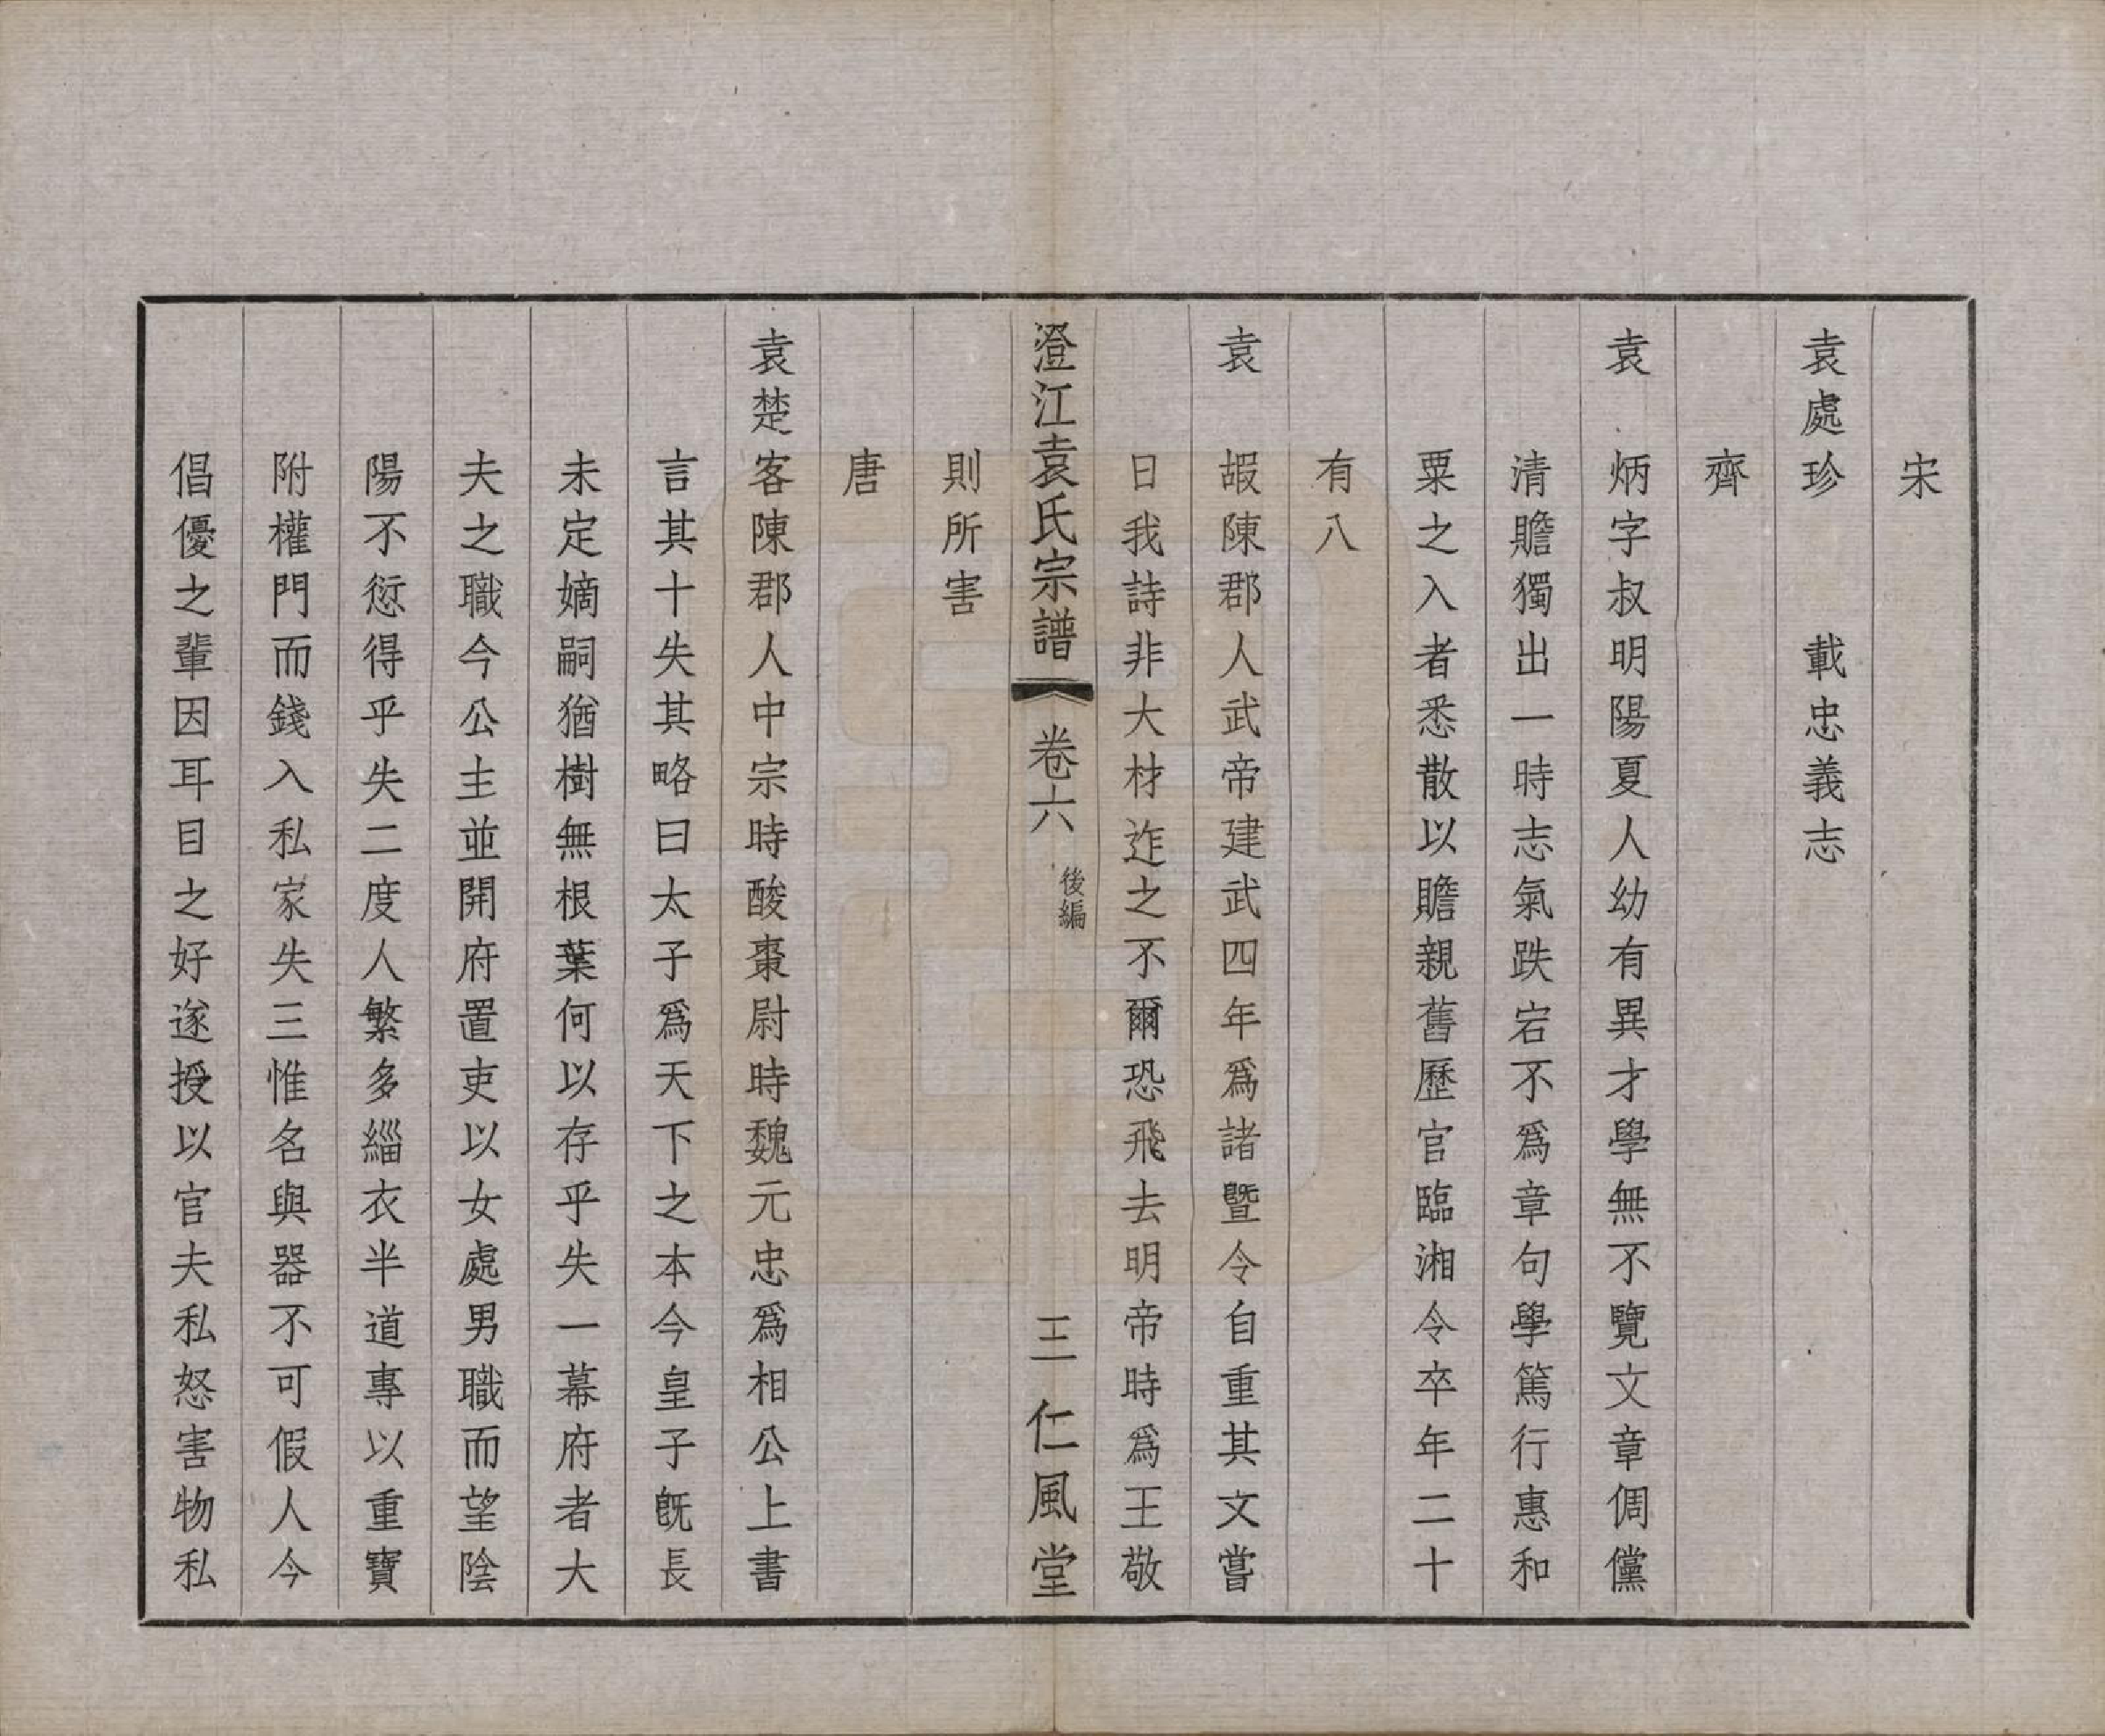 宋
袁處珍　　載忠義志
齊
袁　炳字叔明陽夏人幼有異才學無不覽文章倜儻
清贍獨出一時志氣跌宕不爲章句學篤行惠和
粟之入者悉散以贍親舊歷官臨湘令卒年二十
有八
袁　嘏陳郡人武帝建武四年爲諸暨令自重其文嘗
日我詩非大材迮之不爾恐飛去明帝時爲王敬
澄江袁氏宗譜　卷六　後編　三　仁風堂
則所害
唐
袁楚客陳郡人中宗時酸棗尉時魏元忠爲相公上書
言其十失其略曰太子爲天下之本今皇子旣長
未定嫡嗣猶樹無根葉何以存乎失一幕府者大
夫之職今公主並開府置吏以女處男職而望陰
陽不愆得乎失二度人繁多緇衣半道專以重寶
附權門而錢入私家失三惟名與器不可假人今
倡優之輩因耳目之好遂授以官夫私怒害物私